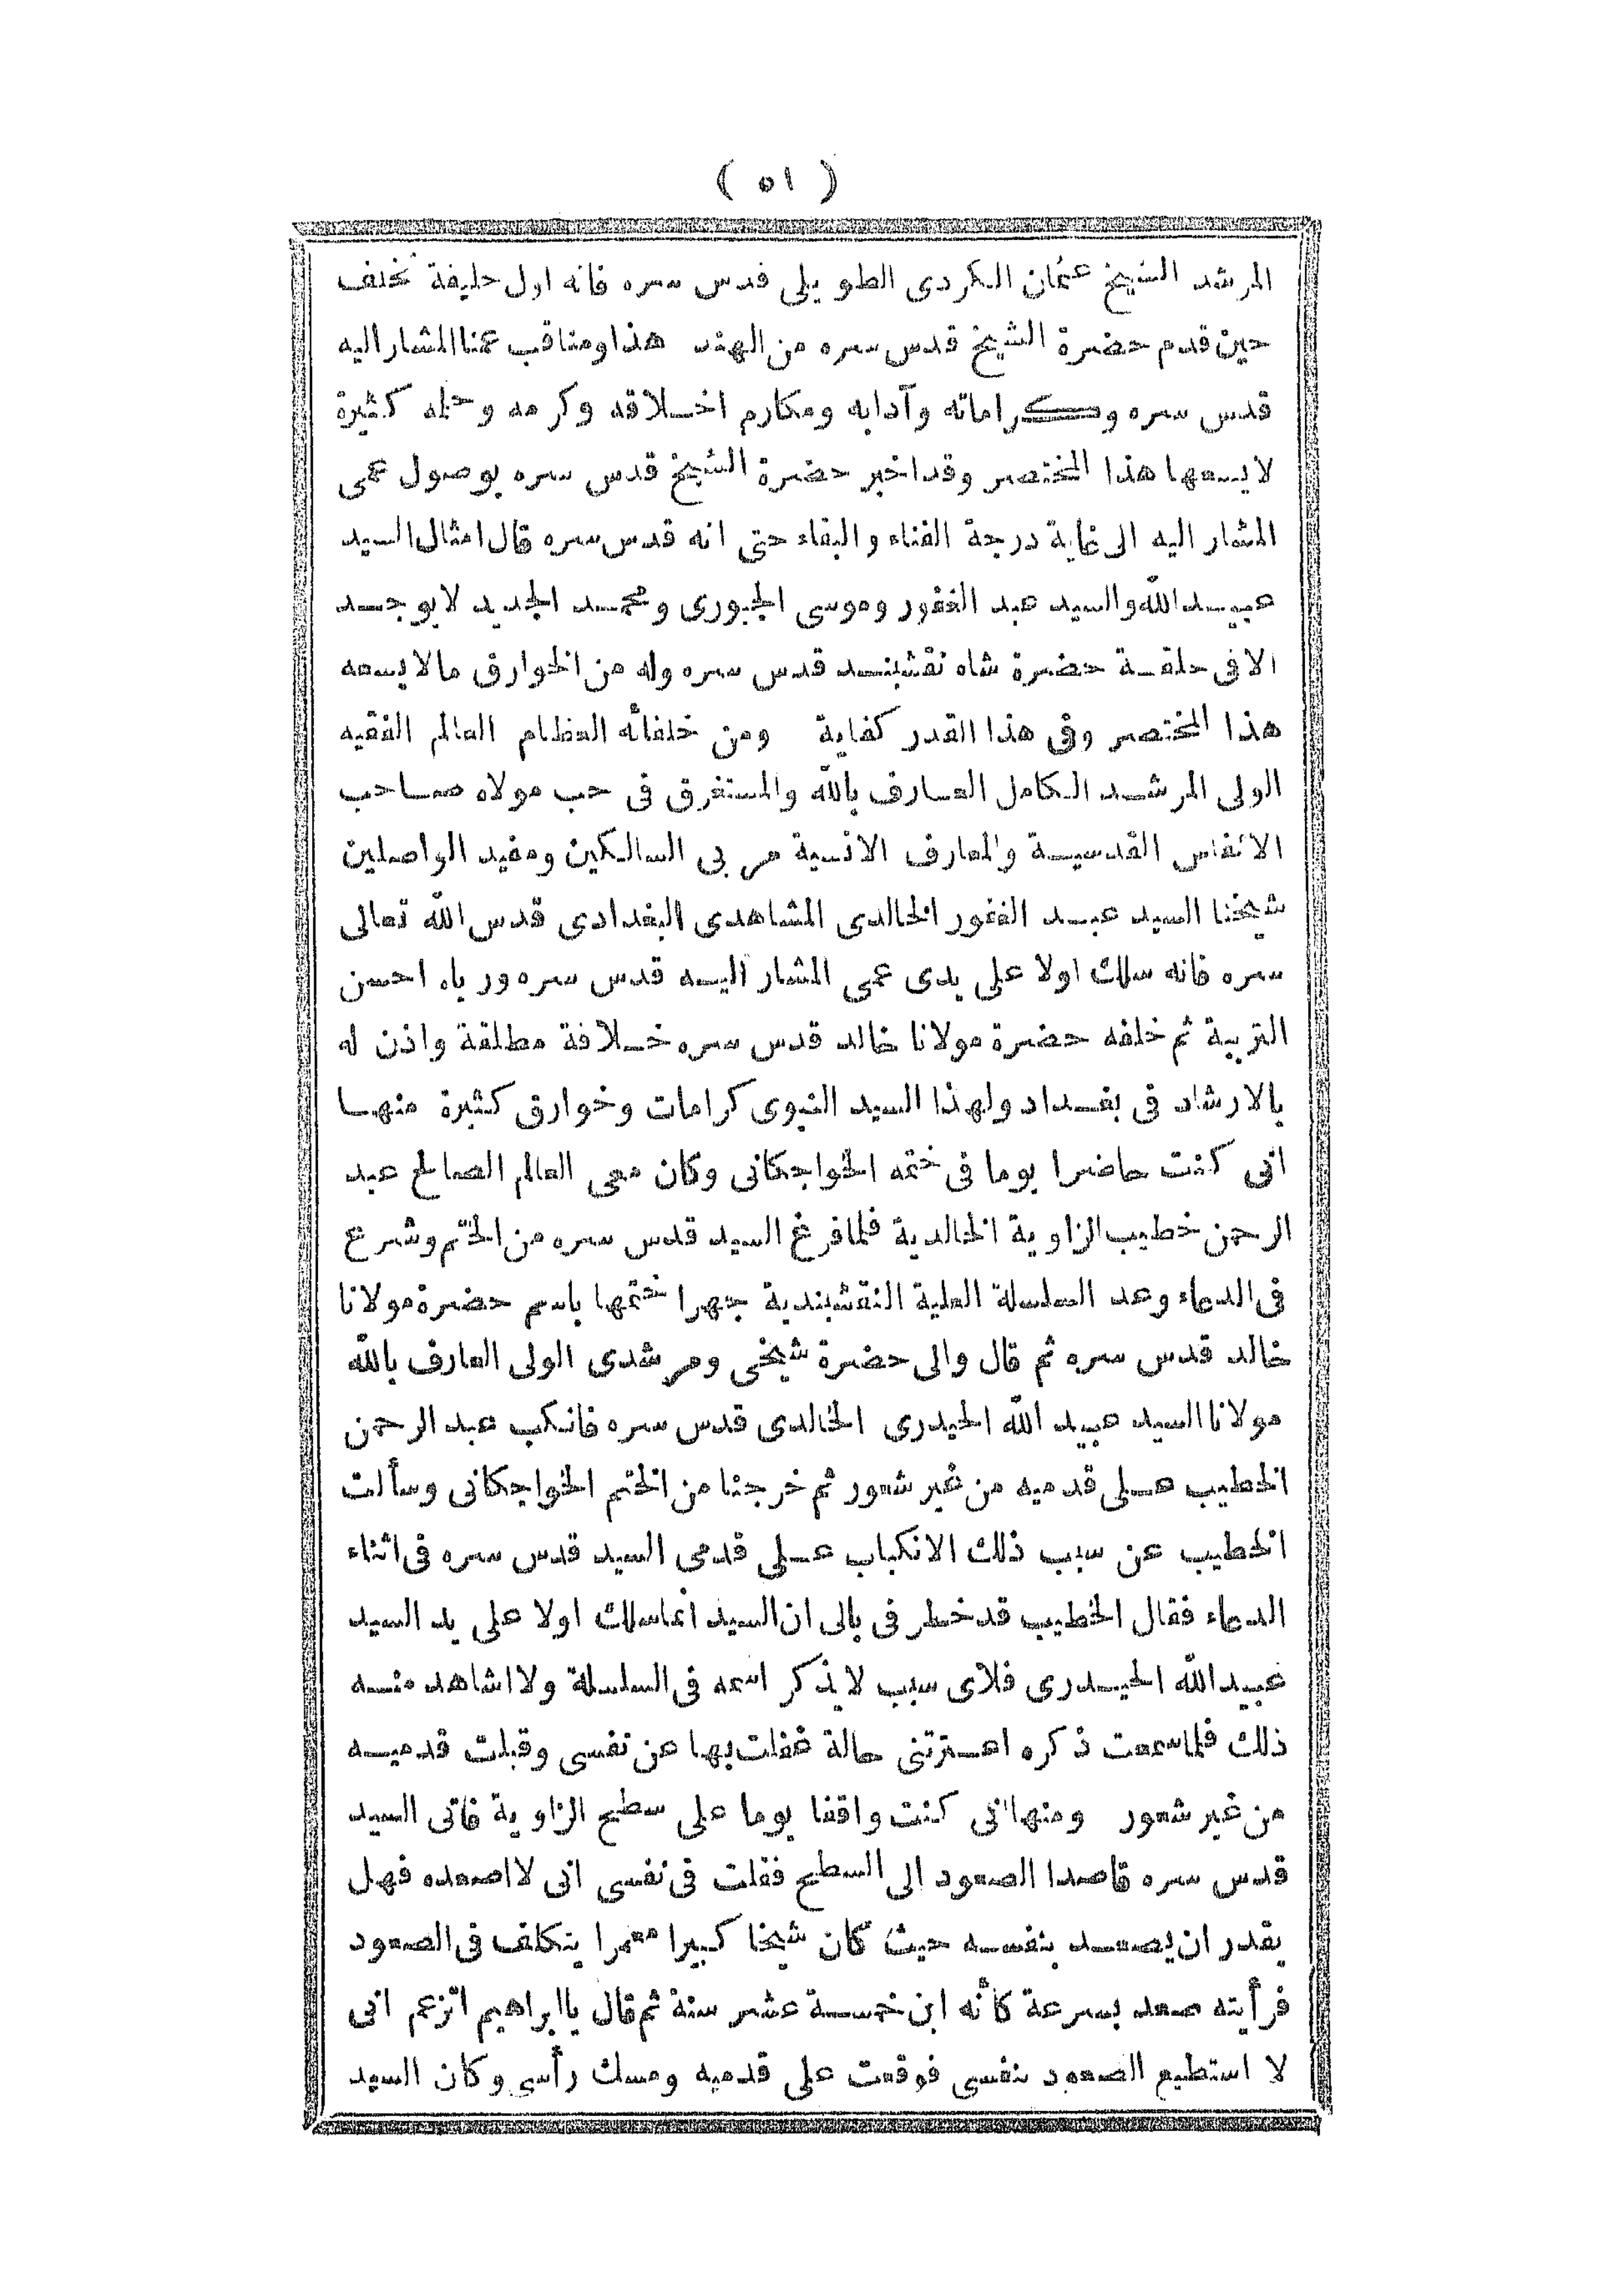 ( ٥١ )
المرشد الشيخ عثمان الكردى الطويلى قدس سره فانه اول خليفة تخلف
حين قدم حضرة الشيخ قدس سره من الهند هذا ومناقب عمنا المشار اليه
قدس سره وكراماته وآدابه ومكارم اخلاقه وكرمه وحلمه كثيرة
لا يسعها هذا المختصر وقد اخبر حضرة الشيخ قدس سره بوصول عمى
المشار اليه الى غاية درجة الفناء والبقاء حتى انه قدس سره قال امثال السيد
عبيد الله والسيد عبد الغفور وموسى الجبورى ومحمد الجديد لا يوجد
الا فى حلقة حضرة شاه نقشبند قدس سره وله من الخوارق مالا يسعه
هذا المختصر وفى هذا القدر كفاية ومن خلفائه العظام العالم الفقيه
الولى المرشد الكامل العارف بالله والمستغرق فى حب مولاه صاحب
الانفاس القدسية والمعارف الانسية مربى السالكين ومفيد الواصلين
شيخنا السيد عبد الغفور الخالدى المشاهدى البغدادى قدس الله تعالى
سره فانه سلك اولا على يدى عمى المشار اليه قدس سره ورباه احسن
التربية ثم خلفه حضرة مولانا خالد قدس سره خلافة مطلقة واذن له
بالارشاد فى بغداد ولهذا السيد النبوى كرامات وخوارق كثيرة منها
انى كنت حاضرا يوما فى ختمه الخواجكانى وكان معى العالم الصالح عبد
الرحمن خطيب الزاوية الخالدية فلما فرغ السيد قدس سره من الختم وشرع
فى الدعاء وعد السلسلة العلية النقشبندية جهرا ختمها باسم حضرة مولانا
خالد قدس سره ثم قال والى حضرة شيخى ومرشدى الولى العارف بالله
مولانا السيد عبيد الله الحيدرى الخالدى قدس سره فانكب عبد الرحمن
الخطيب على قدميه من غير شعور ثم خرجنا من الختم الخواجكانى وسألت
الخطيب عن سبب ذلك الانكباب على قدمى السيد قدس سره فى اثناء
الدعاء فقال الخطيب قد خطر فى بالى ان السيد انما سلك اولا على يد السيد
عبيد الله الحيدرى فلاى سبب لا يذكر اسمه فى السلسلة ولا اشاهد منه
ذلك فلما سمعت ذكره اعترتنى حالة غفلت بها عن نفسى وقبلت قدميه
من غير شعور ومنها انى كنت واقفا يوما على سطح الزاوية فاتى السيد
قدس سره قاصدا الصعود الى السطح فقلت فى نفسى انى لا اصعده فهل
يقدر ان يصعد بنفسه حيث كان شيخا كبيرا معمرا يتكلف فى الصعود
فرأيته صعد بسرعة كأنه ابن خمسة عشر سنة ثم قال يا ابراهيم اتزعم انى
لا استطيع الصعود بنفسى فوقعت على قدميه ومسك رأسى وكان السيد